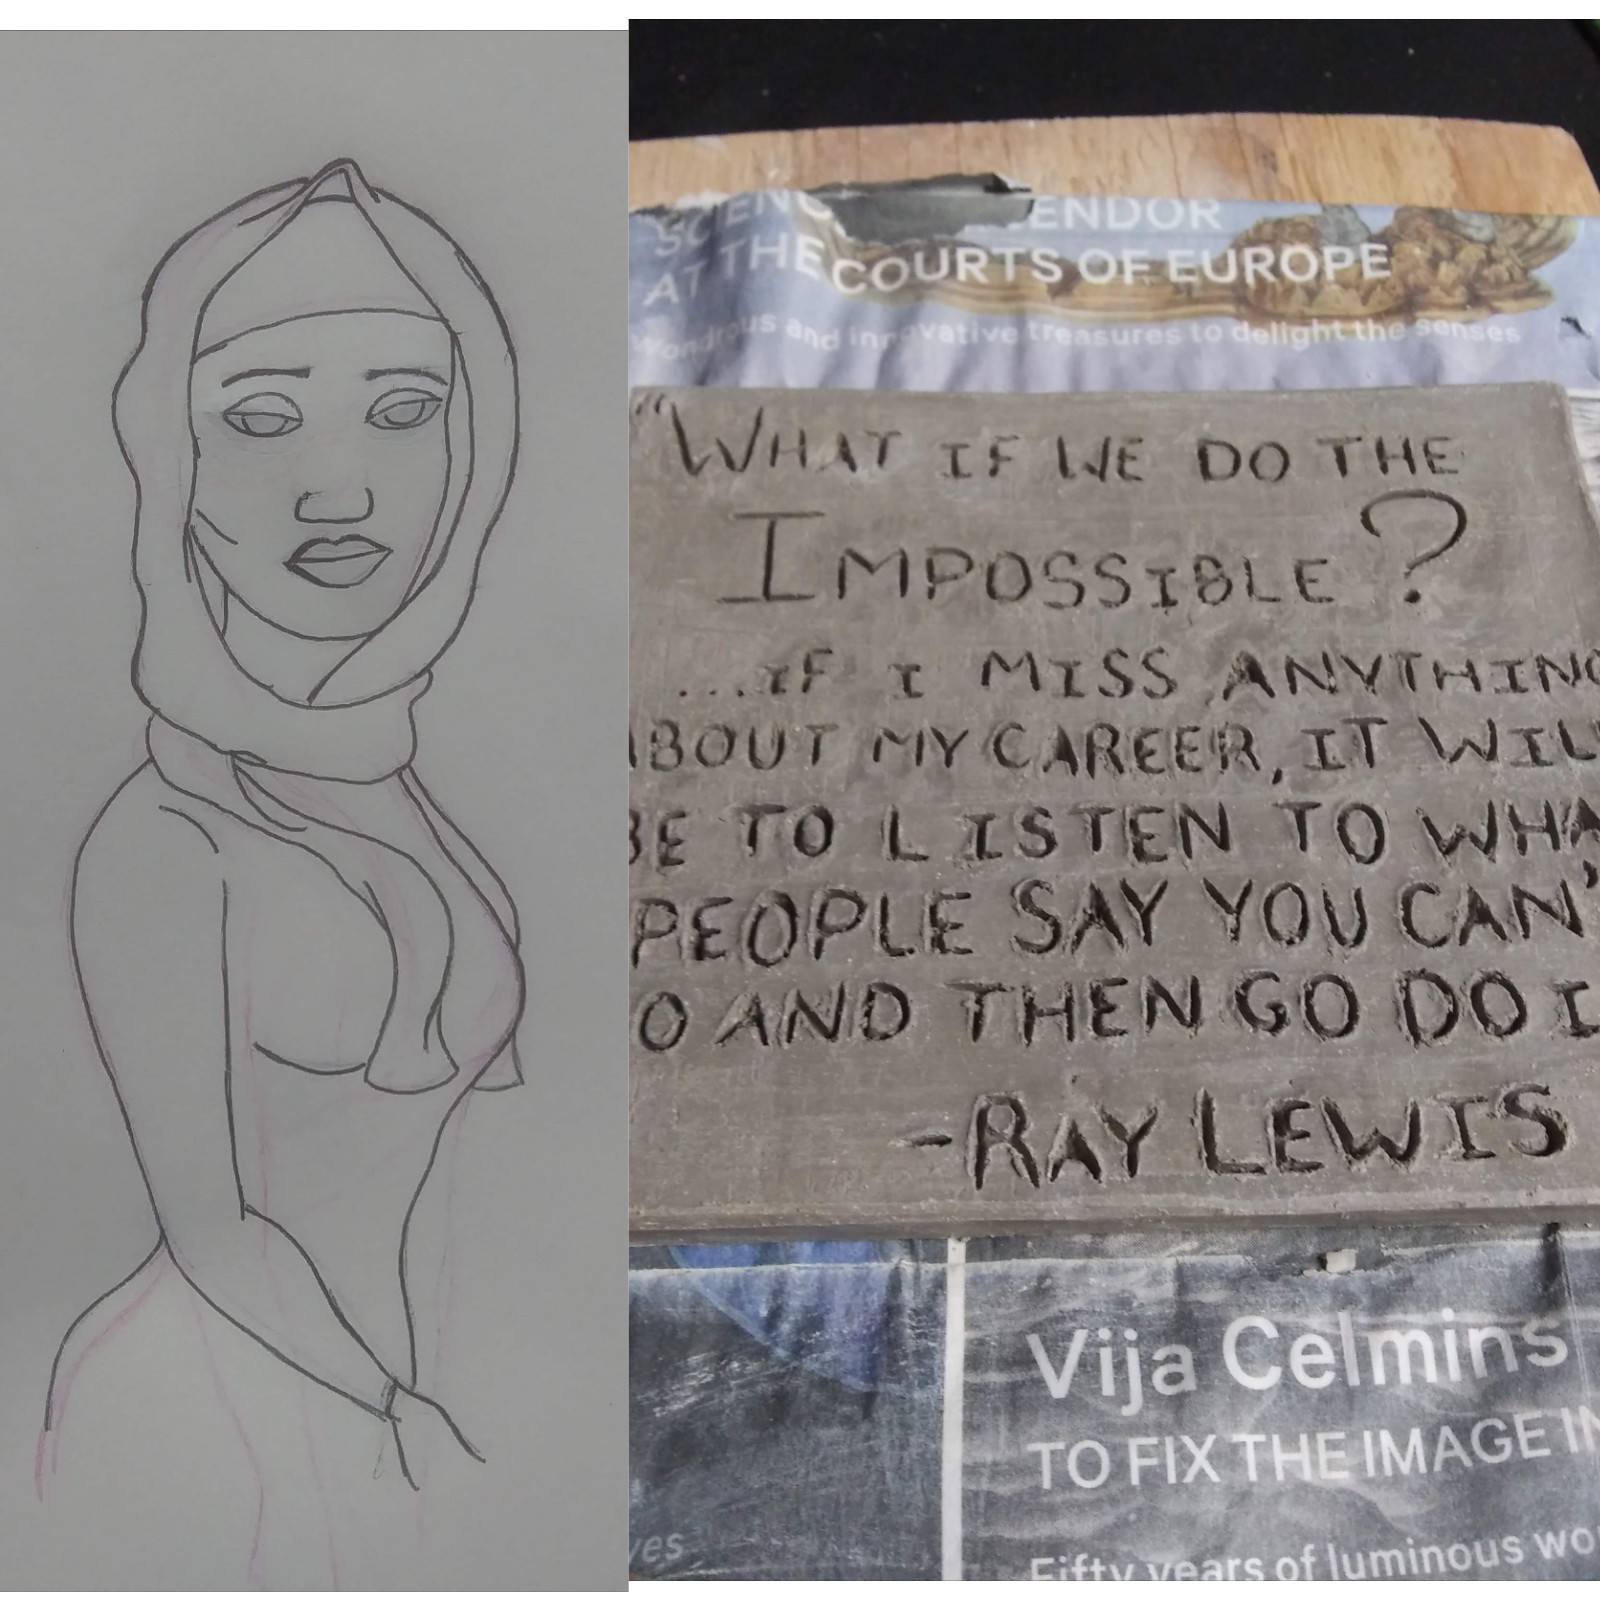 ENDOR
AT THE COURTS OF EUROPE
Wondrous and innovative treasures to delight the senses
"WHAT IF WE DO THE
IMPOSSIBLE?
...IF I MISS ANYTHING
ABOUT MY CAREER, IT WIL
BE TO LISTEN TO WHA
PEOPLE SAY YOU CAN'
O AND THEN GO DO I
-RAY LEWIS
Vija Celmins
TO FIX THE IMAGE IN
yes
Fifty years of luminous wo